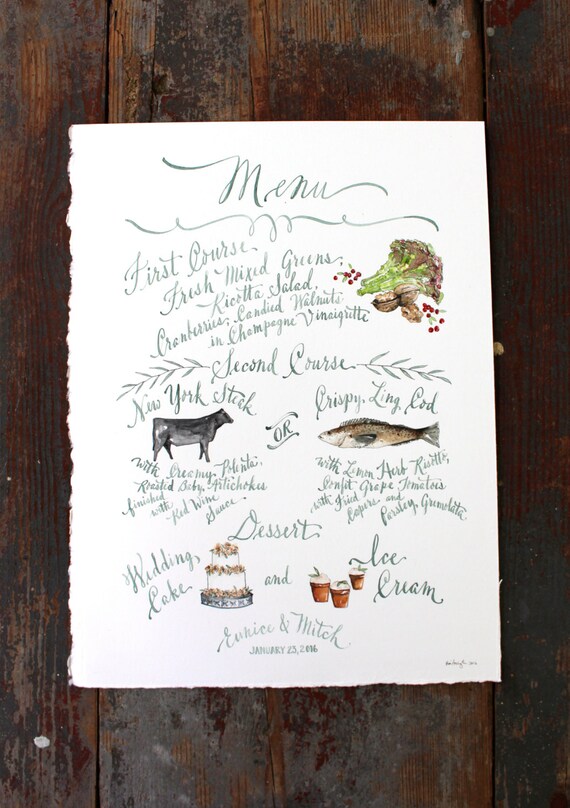 Menu
First Course
Fresh Mixed Greens
Ricotta Salad,
Cranberries, Candied Walnuts
in Champagne Vinaigrette
Second Course
New York Steak
with Creamy Polenta,
Roasted Baby Artichokes
finished with Red Wine
Sauce
OR
Crispy Ling Cod
with Lemon Herb Risotto,
Confit Grape Tomatoes
with Fried Capers and
Parsley Gremolata
Dessert
Wedding
Cake
and
Ice
Cream
Eunice & Mitch
JANUARY 23, 2016